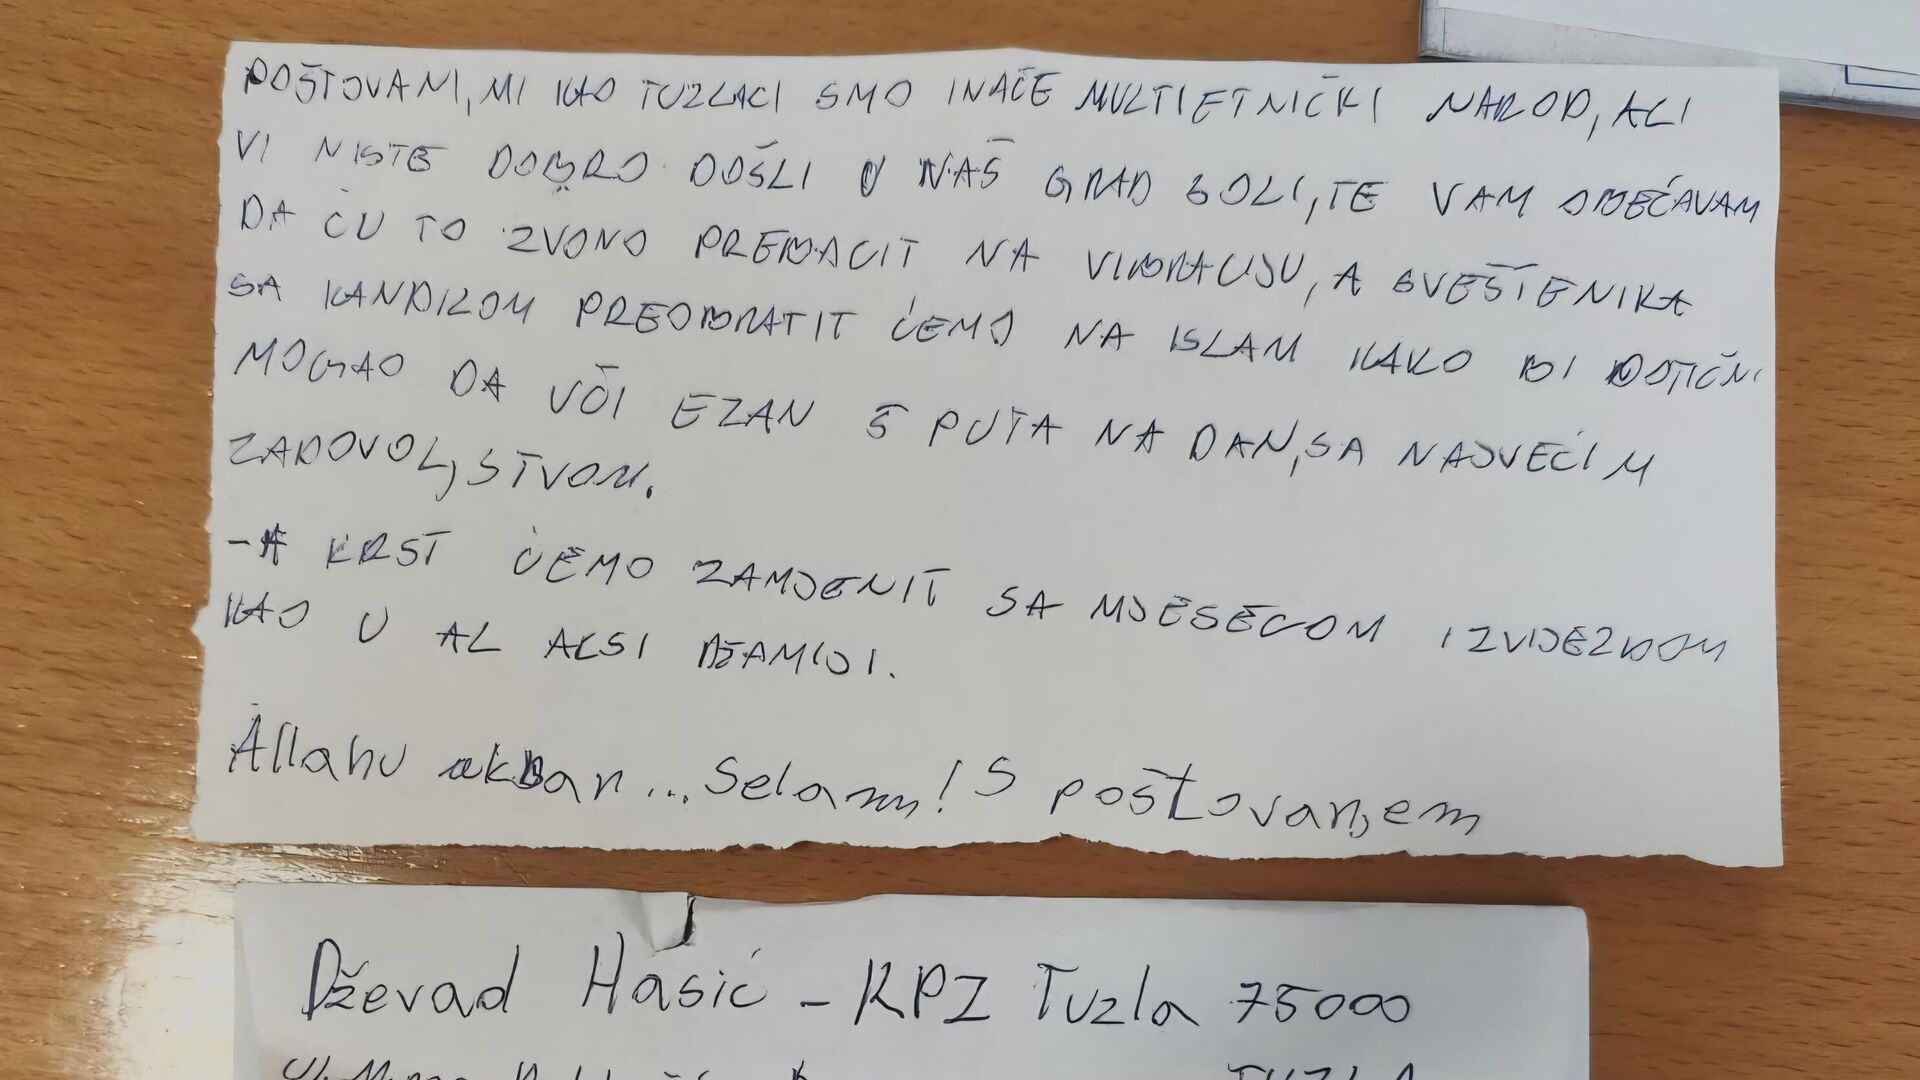 POŠTOVANI, MI KAO TUZLACI SMO INAČE MULTIETNIČKI NAROD, ALI
VI NISTE DOBRO DOŠLI U NAŠ GRAD SOLI, TE VAM OBEĆAVAM
DA ĆU TO ZVONO PREBACIT NA VIBRACIJU, A SVEŠTENIKA
SA KANDILOM PREOBRATIT ĆEMO NA ISLAM KAKO BI DOTIČNI
MOGAO DA UČI EZAN 5 PUTA NA DAN, SA NAJVEĆIM
ZADOVOLJSTVOM.
- A KRST ĆEMO ZAMJENIT SA MJESECOM I ZVIJEZDOM
KAO U AL AKSI DŽAMIJI.
Allahu akbar... Selam! S poštovanjem
Dževad Hasić - KPZ Tuzla 75000
TUZLA